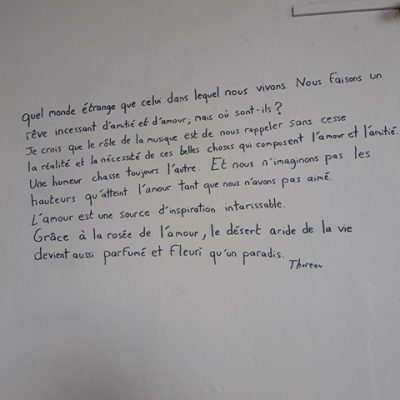 quel monde étrange que celui dans lequel nous vivons. Nous faisons un
rêve incessant d'amitié et d'amour; mais où sont-ils?
Je crois que le rôle de la musique est de nous rappeler sans cesse
la réalité et la nécessité de ces belles choses qui composent l'amour et l'amitié.
Une humeur chasse toujours l'autre. Et nous n'imaginons pas les
hauteurs qu'atteint l'amour tant que nous n'avons pas aimé.
L'amour est une source d'inspiration intarissable.
Grâce à la rosée de l'amour, le désert aride de la vie
devient aussi parfumé et fleuri qu'un paradis.
Thoreau